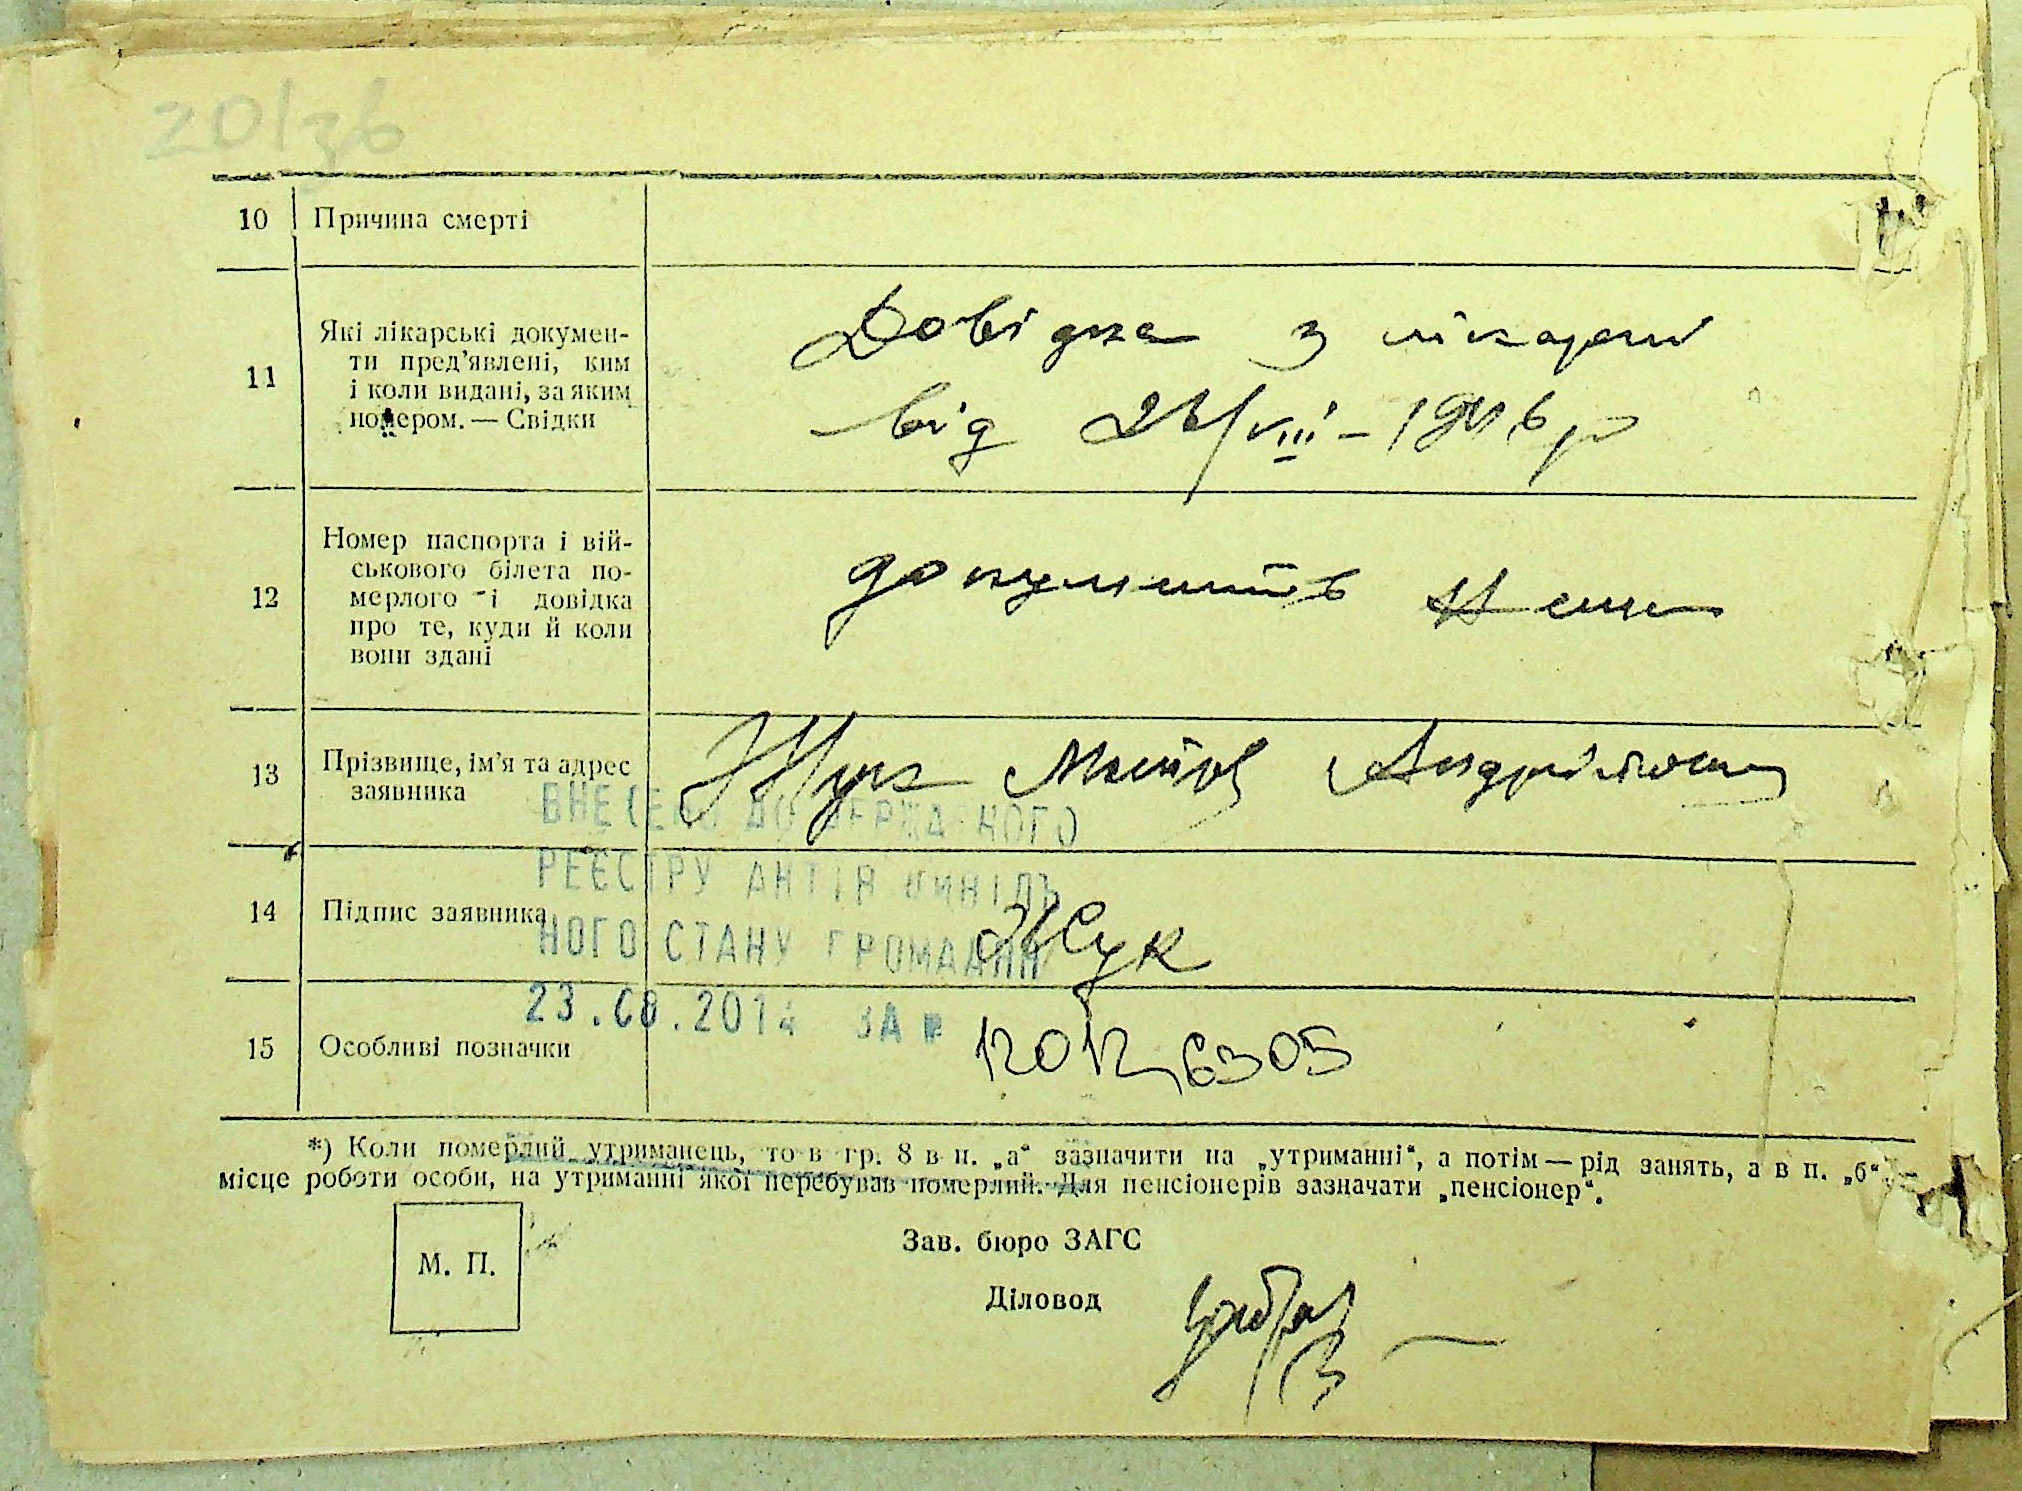 20/зв
10 Причина смерті
11 Які лікарські докумен-
ти пред’явлені, ким
і коли видані, за яким
номером. — Свідки
Довідка з лікарені
від 26/VIII – 1946 р
12 Номер паспорта і вій-
ськового білета по-
мерлого і довідка
про те, куди й коли
вони здані
документів нема
13 Прізвище, ім’я та адрес
заявника
Жук Андрійович
ВНЕСЕНО ДО ДЕРЖАВНОГО
РЕЄСТРУ АКТІВ ЦИВІЛЬ
НОГО СТАНУ ГРОМАДЯН
14 Підпис заявника
Жук
23.08.2014 ЗА №
15 Особливі позначки
*) Коли померлий утриманець, то в гр. 8 в п. „а“ зазначити на „утриманні“, а потім — рід занять, а в п. „б“ –
місце роботи особи, на утриманні якої перебував померлий. Для пенсіонерів зазначати „пенсіонер“.
М. П.
Зав. бюро ЗАГС
Діловод